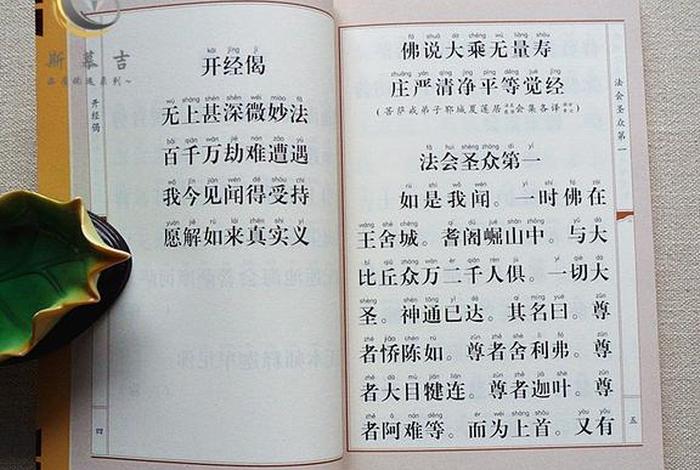 斯慕吉
开经偈
kāi jīng jì
开经偈
wú shàng shén shēn wēi miào fǎ
无上甚深微妙法
bǎi qiān wàn jié nán zāo yù
百千万劫难遭遇
wǒ jīn jiàn wén dé shòu chí
我今见闻得受持
yuàn jiě rú lái zhēn shí yì
愿解如来真实义
四
fó shuō dà chéng wú liàng shòu
佛说大乘无量寿
zhuāng yán qīng jìng píng děng jué jīng
庄严清净平等觉经
(菩萨戒弟子郓城夏莲居 会集各译
fǎ huì shèng zhòng dì yī
法会圣众第一
rú shì wǒ wén yì shí fó zài
如是我闻。一时佛在
wáng shè chéng qí dū jué shān zhōng yǔ dà
王舍城。耆阇崛山中。与大
bǐ qiū zhòng wàn èr qiān rén jù yí qiè dà
比丘众万二千人俱。一切大
shèng shén tōng yǐ dá qí míng yuē zūn
圣。神通已达。其名曰。尊
zhě jiāo chén rú zūn zhě shè lì fú zūn
者憍陈如。尊者舍利弗。尊
zhě dà mù jiān lián zūn zhě jiā shè zūn
者大目犍连。尊者迦叶。尊
zhě ē nán děng ér wéi shàng shǒu yòu yǒu
者阿难等。而为上首。又有
法会圣众第一
五